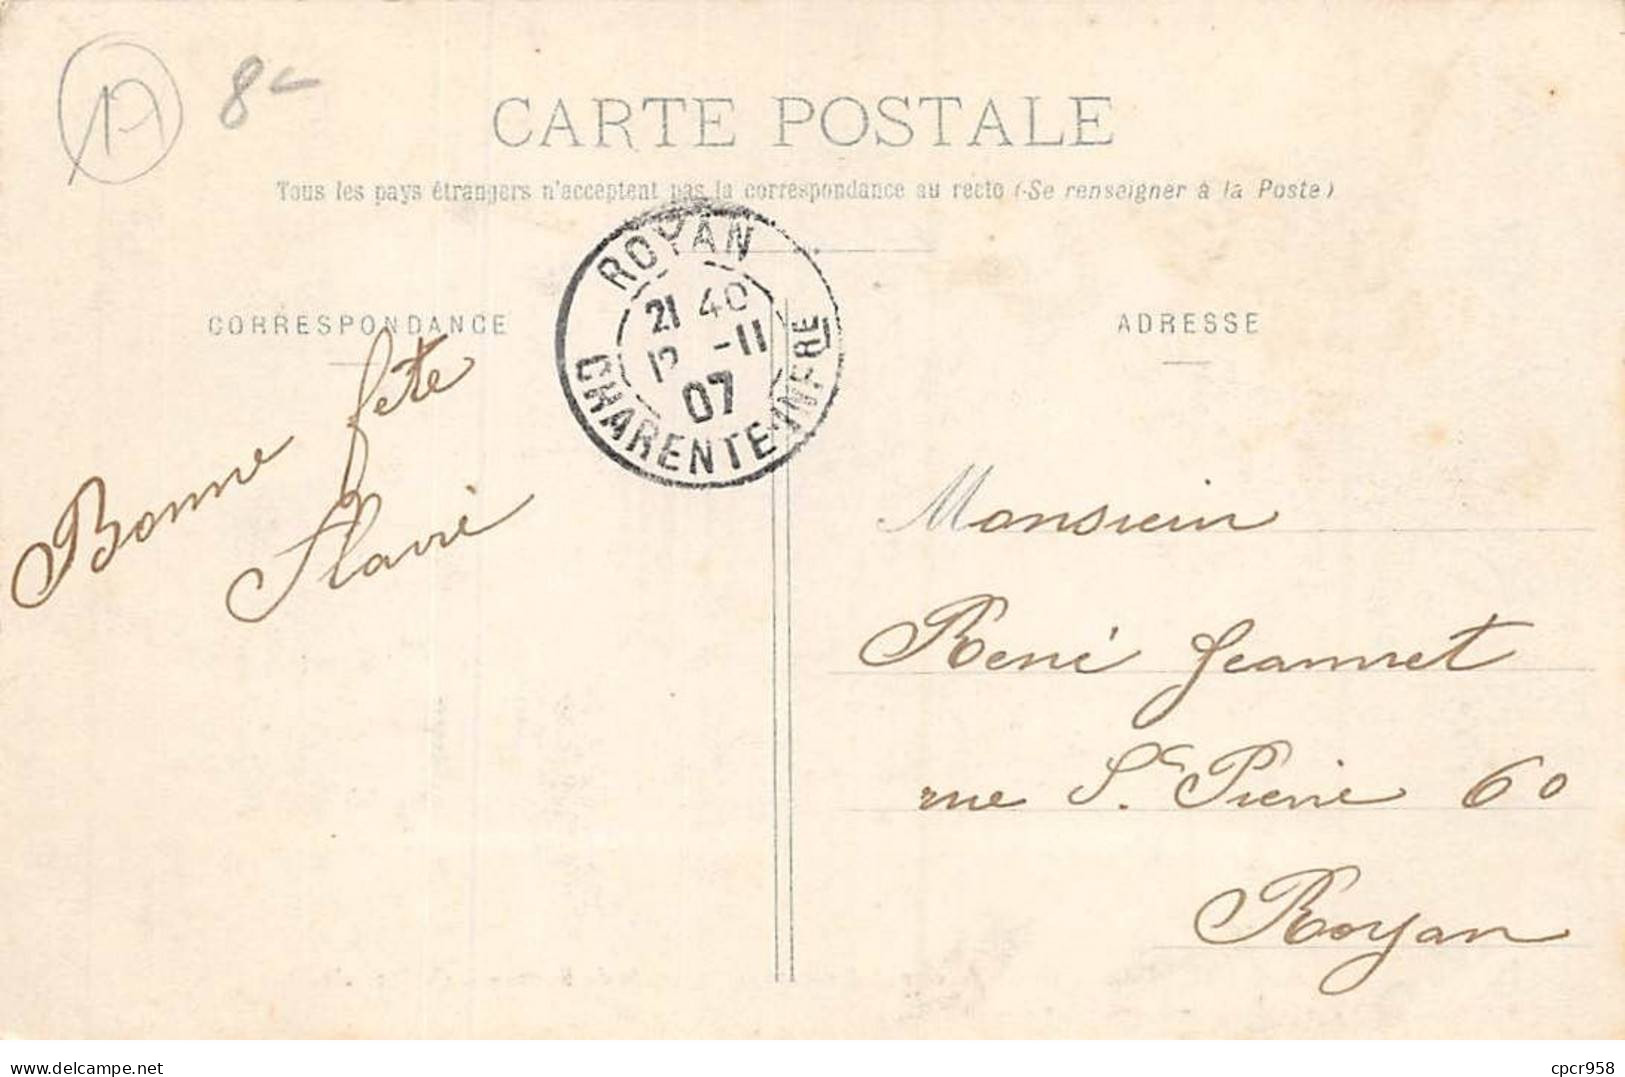 17 8-
CARTE POSTALE
Tous les pays étrangers n'acceptent pas la correspondance au recto (-Se renseigner à la Poste)
ROYAN
21 40
12 -11
07
CHARENTE-INFRE
CORRESPONDANCE
Bonne fête
Flavie
ADRESSE
Monsieur
René Jeannet
rue St. Pierre 60
Royan
delcampe.net
cpcr958